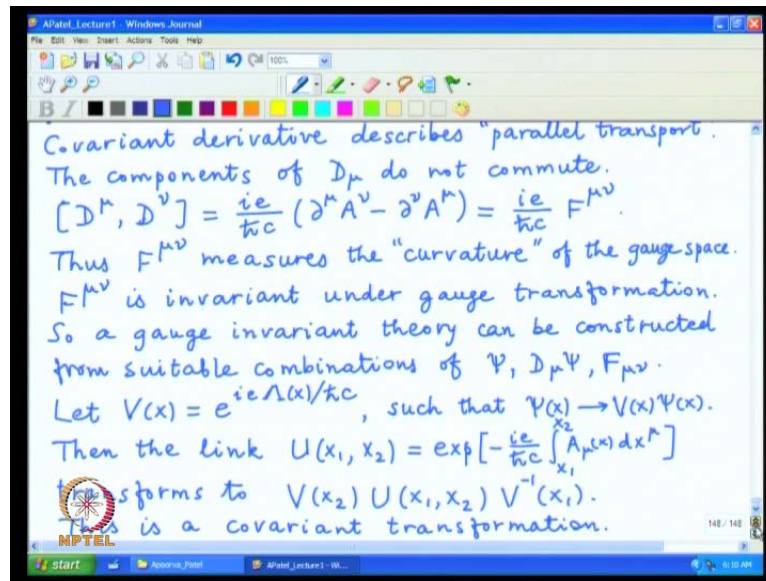 APatel_Lecture1 - Windows Journal
File Edit View Insert Actions Tools Help
100%
B I
Covariant derivative describes "parallel transport".
The components of D_μ do not commute.
[D^μ, D^ν] = ie/ħc (∂^μ A^ν - ∂^ν A^μ) = ie/ħc F^μν.
Thus F^μν measures the "curvature" of the gauge space.
F^μν is invariant under gauge transformation.
So a gauge invariant theory can be constructed
from suitable combinations of Ψ, D_μΨ, F_μν.
Let V(x) = e^{ieΛ(x)/ħc}, such that Ψ(x) → V(x)Ψ(x).
Then the link U(x₁, x₂) = exp[-ie/ħc ∫_{x₁}^{x₂} A_μ(x) dx^μ]
transforms to V(x₂) U(x₁, x₂) V⁻¹(x₁).
This is a covariant transformation.
148 / 148
NPTEL
start Apoorva_Patel APatel_Lecture1 - Wi... 6:10 AM